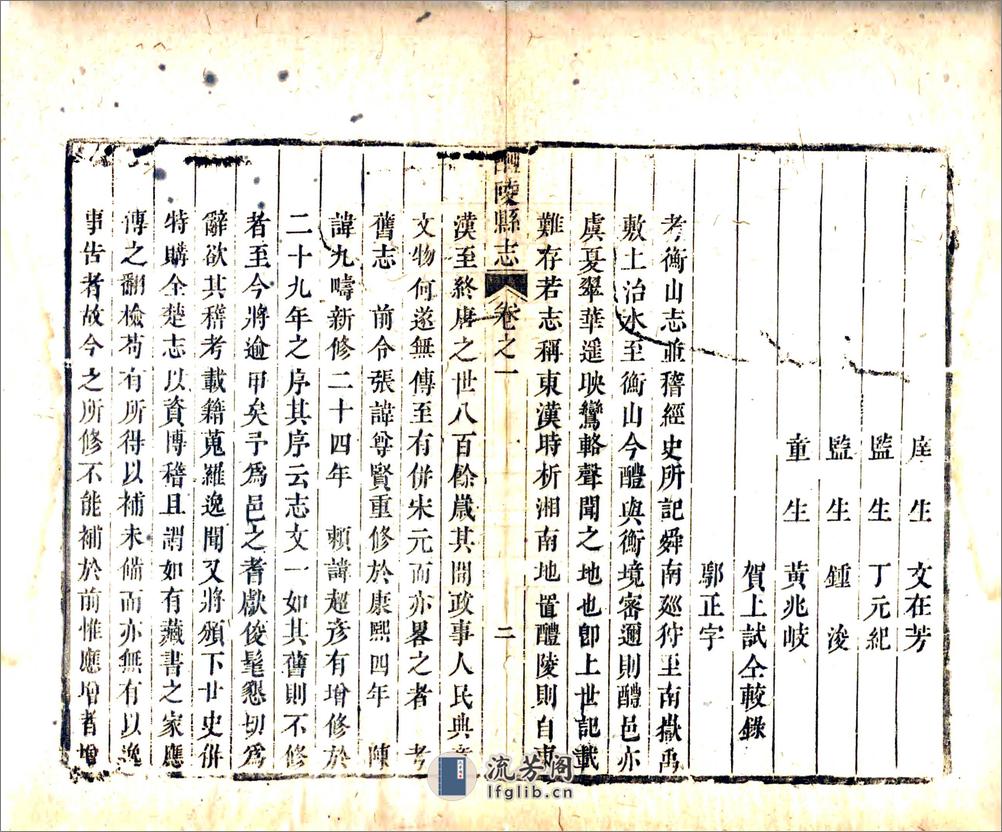 庠生 文在芳
監生 丁元紀
監生 鍾浚
童生 黃兆岐
賀上試仝較錄
郭正字
考衡山志並稽經史所記舜南廵狩至南嶽禹
敷土治水至衡山今醴與衡境密邇則醴邑亦
虞夏翠華遥映鸞輅聲聞之地也卽上世記載
難存若志稱東漢時析湘南地置醴陵則自東
醴陵縣志 卷之一 二
漢至終唐之世八百餘歲其間政事人民典章
文物何遂無傳至有併宋元而亦畧之者 考
舊志 前令張諱尊賢重修於康熙四年 陳
諱九疇新修二十四年 賴諱超彥有增修於
二十九年之序其序云志文一如其舊則不修
者至今將逾甲矣予爲邑之耆獻俊髦懇切爲
辭欲其稽考載籍蒐羅逸聞又將頒下廿史併
特購全楚志以資博稽且謂如有藏書之家應
傳之翻檢苟有所得以補未備而亦無有以逸
事告者故今之所修不能補於前惟應增者增
流芳阁
lfglib.cn